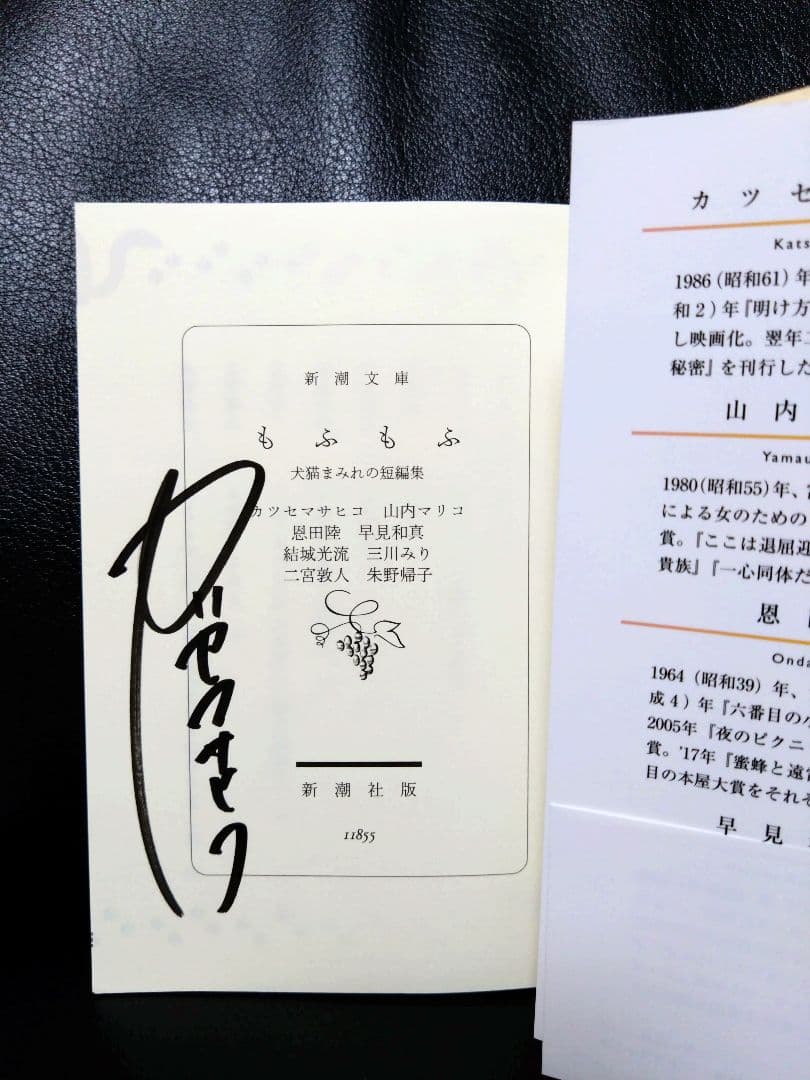 新潮文庫
もふもふ
犬猫まみれの短編集
カツセマサヒコ 山内マリコ
恩田陸 早見和真
結城光流 三川みり
二宮敦人 朱野帰子
新潮社版
11855
カツセマサヒコ
カツセ
Kats
1986(昭和61)年
和2)年『明け方
し映画化。翌年
秘密』を刊行した
山内
Yamau
1980(昭和55)年、
による女のための
賞。『ここは退屈迎
貴族』『一心同体だ
恩
Onda
1964(昭和39)年、
成4)年『六番目の小
2005年『夜のピクニ
賞。'17年『蜜蜂と遠雷
目の本屋大賞をそれぞ
早見